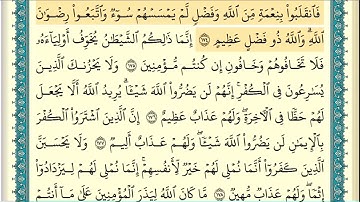 فَٱنقَلَبُوا۟ بِنِعْمَةٍ مِّنَ ٱللَّهِ وَفَضْلٍ لَّمْ يَمْسَسْهُمْ سُوٓءٌ وَٱتَّبَعُوا۟ رِضْوَٰنَ
ٱللَّهِ ۗ وَٱللَّهُ ذُو فَضْلٍ عَظِيمٍ ١٧٤ إِنَّمَا ذَٰلِكُمُ ٱلشَّيْطَٰنُ يُخَوِّفُ أَوْلِيَآءَهُۥ
فَلَا تَخَافُوهُمْ وَخَافُونِ إِن كُنتُم مُّؤْمِنِينَ ١٧٥ وَلَا يَحْزُنكَ ٱلَّذِينَ
يُسَٰرِعُونَ فِى ٱلْكُفْرِ ۚ إِنَّهُمْ لَن يَضُرُّوا۟ ٱللَّهَ شَيْـًٔا ۗ يُرِيدُ ٱللَّهُ أَلَّا يَجْعَلَ
لَهُمْ حَظًّا فِى ٱلْءَاخِرَةِ ۖ وَلَهُمْ عَذَابٌ عَظِيمٌ ١٧٦ إِنَّ ٱلَّذِينَ ٱشْتَرَوُا۟ ٱلْكُفْرَ
بِٱلْإِيمَٰنِ لَن يَضُرُّوا۟ ٱللَّهَ شَيْـًٔا وَلَهُمْ عَذَابٌ أَلِيمٌ ١٧٧ وَلَا يَحْسَبَنَّ
ٱلَّذِينَ كَفَرُوٓا۟ أَنَّمَا نُمْلِى لَهُمْ خَيْرٌ لِّأَنفُسِهِمْ ۚ إِنَّمَا نُمْلِى لَهُمْ لِيَزْدَادُوٓا۟
إِثْمًا ۚ وَلَهُمْ عَذَابٌ مُّهِينٌ ١٧٨ مَّا كَانَ ٱللَّهُ لِيَذَرَ ٱلْمُؤْمِنِينَ عَلَىٰ مَآ أَنتُمْ